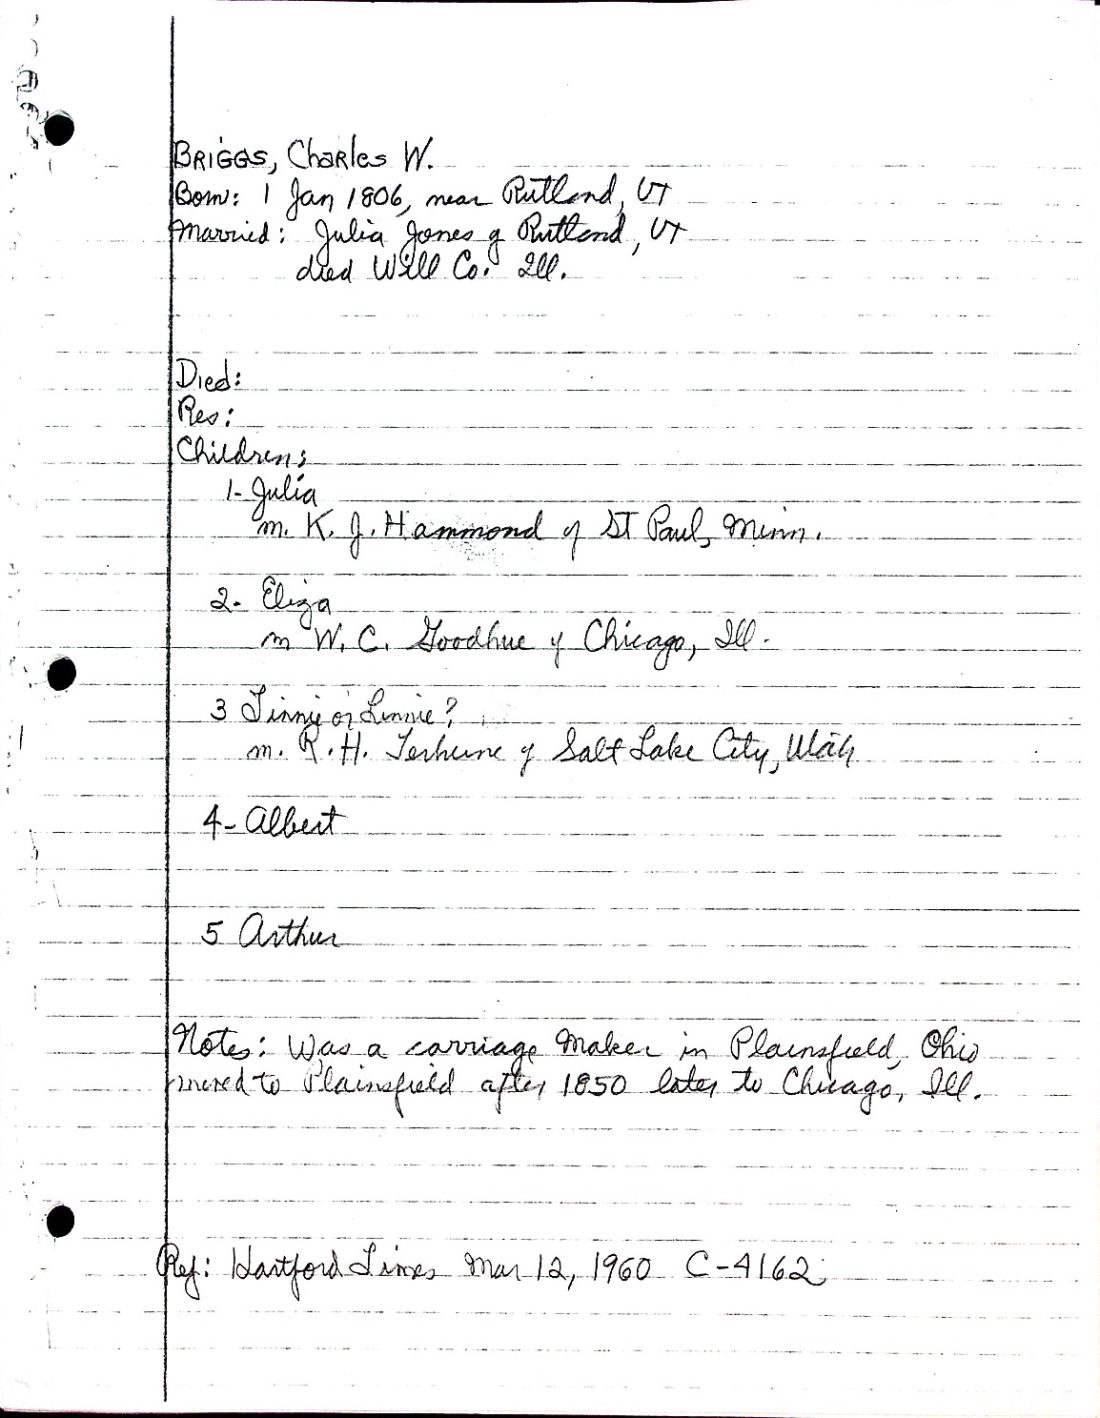 BRIGGS, Charles W.
Born: 1 Jan 1806, near Rutland, VT
Married: Julia Jones of Rutland, VT
died Will Co. Ill.
Died:
Res:
Children:
1- Julia
m. K. J. Hammond of St Paul, Minn.
2- Eliza
m W. C. Goodhue of Chicago, Ill.
3 Tinnie or Linnie?
m. R. H. Terhune of Salt Lake City, Utah
4- Albert
5 Arthur
Notes: Was a carriage maker in Plainsfield, Ohio
moved to Plainsfield after 1850 later to Chicago, Ill.
Ref: Hartford Times Mar 12, 1960 C-4162